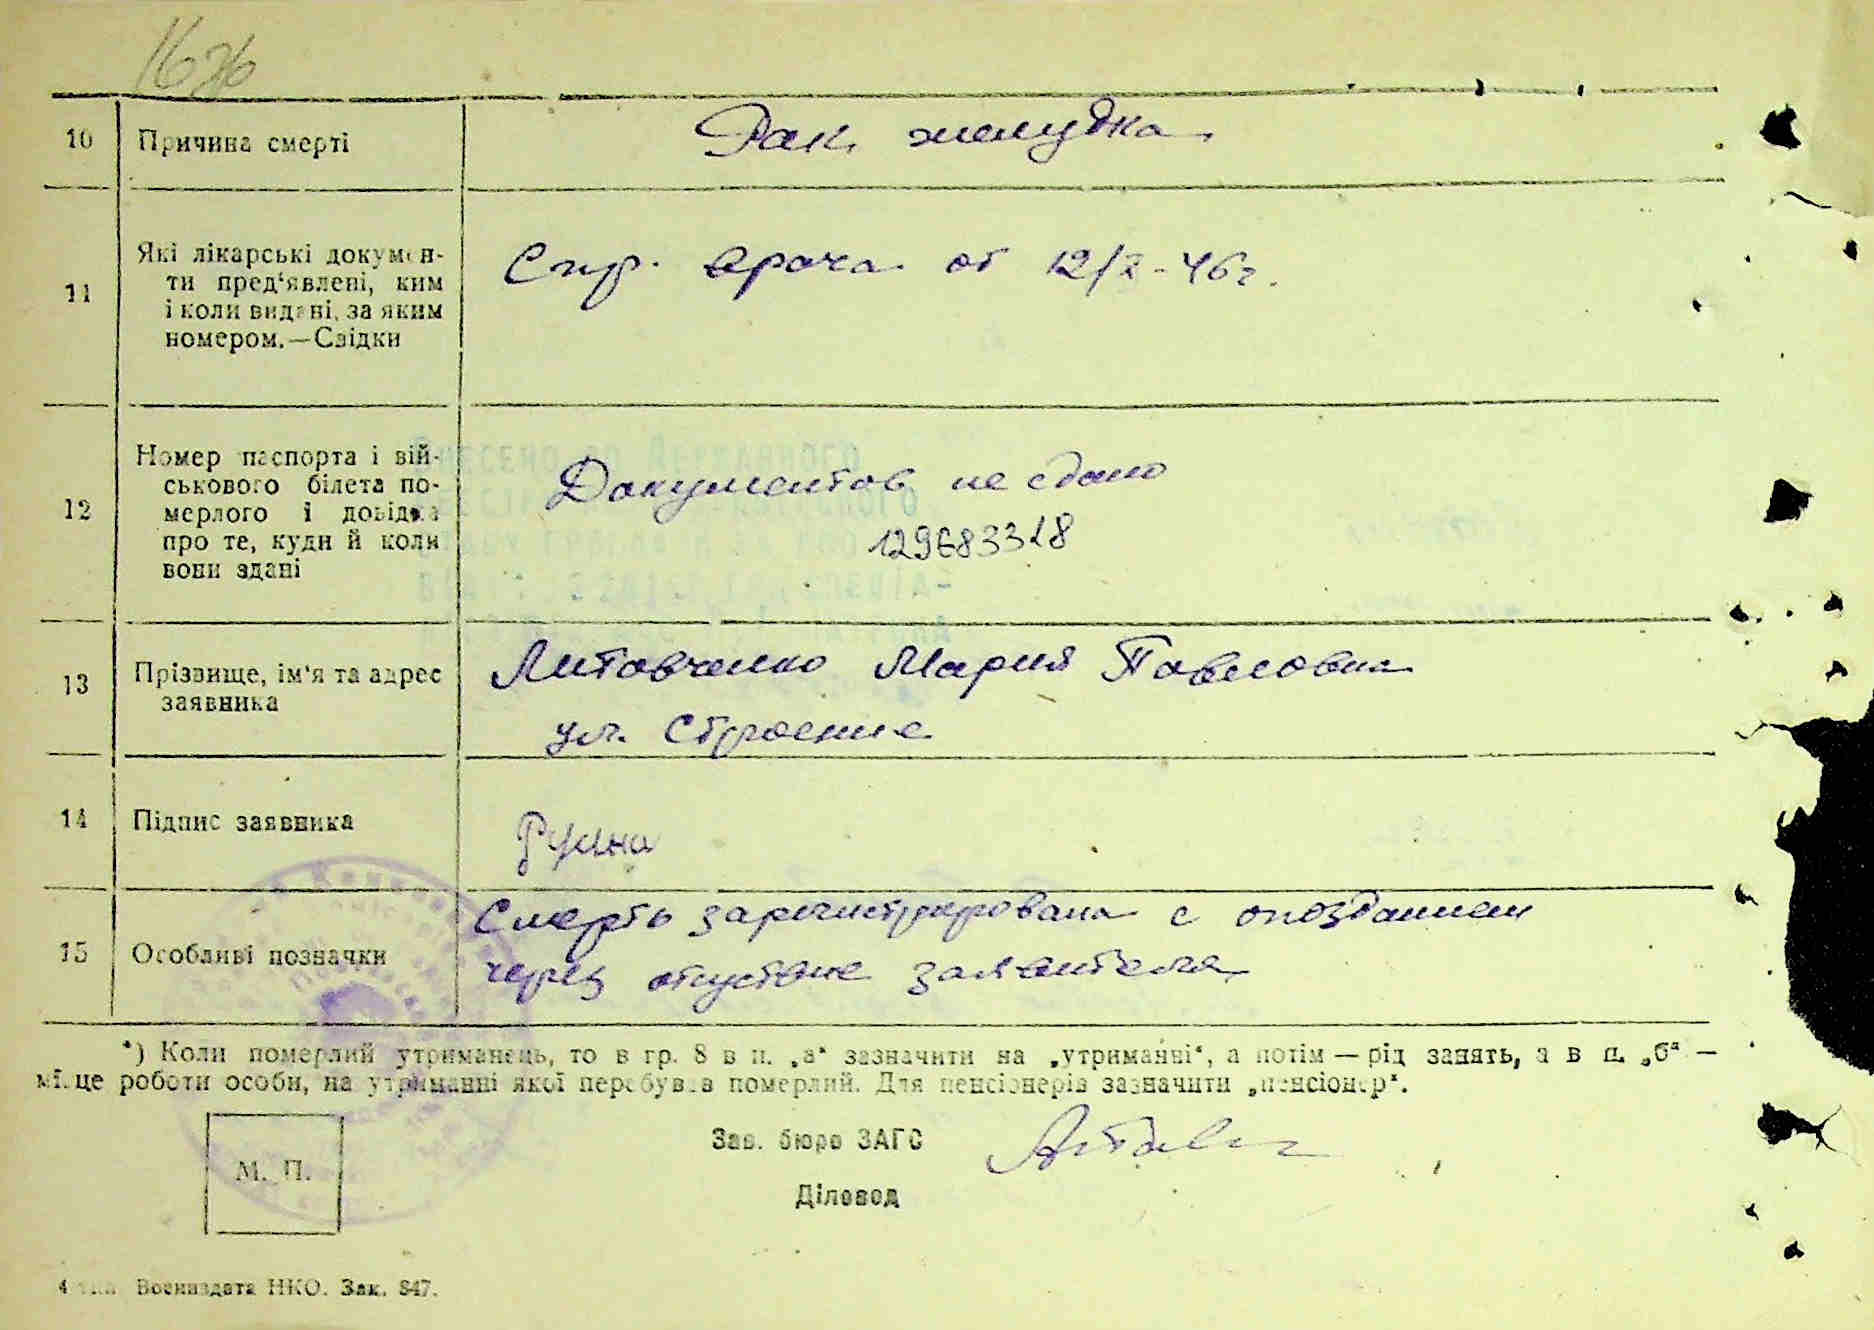 10 Причина смерті Рак желудка
11 Які лікарські докумен-
ти пред'явлені, ким
і коли видані, за яким
номером.—Свідки
Спр. врача от 12/X-46г.
12 Номер паспорта і вій-
ськового білета по-
мерлого і довідка
про те, куди й коли
вони здані
Документов не сдано
129683318
13 Прізвище, ім'я та адрес
заявника
Литовченко Мария Павловна
ул. Строение
14 Підпис заявника
15 Особливі позначки
Смерть зарегистрирована с опозданием
через отсутствие заявителя
*) Коли померлий утриманець, то в гр. 8 в п. „а“ зазначити на „утриманні“, а потім — рід занять, а в п. „б“ —
місце роботи особи, на утриманні якої перебував померлий. Для пенсіонерів зазначити „пенсіонер“.
М. П.
Зав. бюро ЗАГС
Діловод
Воениздата НКО. Зак. 847.